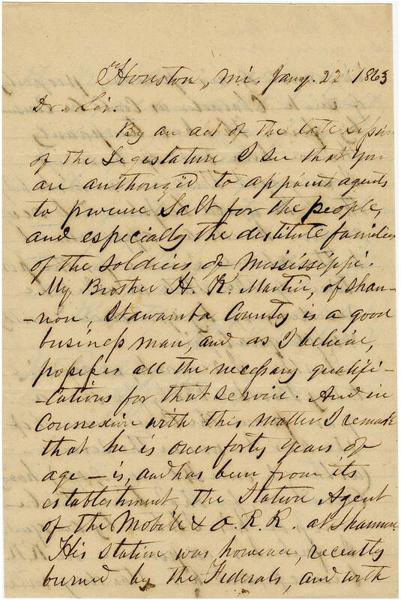 Houston, Mi. Jany. 22 1863
Dr. Sir.
By an act of the late Session
of the Legislature I see that you
are authoriz'd to appoint agents
to procure Salt for the people,
and especially the destitute families
of the soldiers of Mississippi.
My Brother H. K. Martin, of Shan-
-non, Itawamba County is a good
business man, and as I believe,
possesses all the necessary qualifi-
-cations for that service. And in
Connexion with this matter I remark
that he is over forty years of
age - is, and has been from its
establishment, the Station Agent
of the Mobile & O. R. R. at Shannon.
His station was however, recently
burned by the Federals, and with